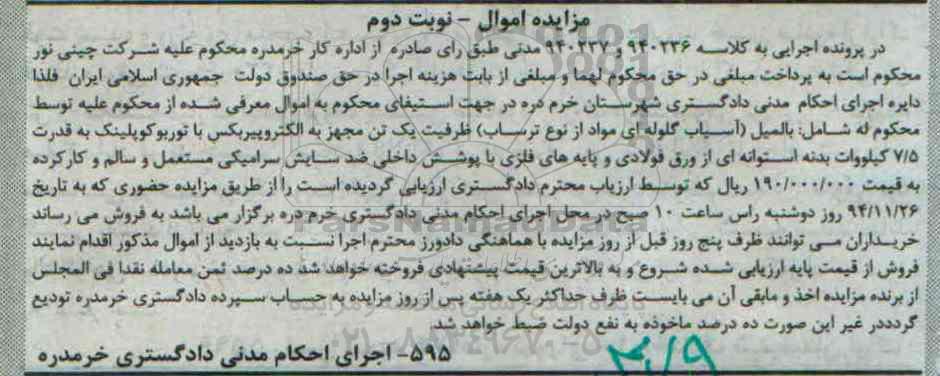 مزایده اموال - نوبت دوم
در پرونده اجرایی به کلاسه ۹۴۰۲۳۶ و ۹۴۰۲۳۷ مدنی طبق رای صادره از اداره کار خرمدره محکوم علیه شرکت چینی نور
محکوم است به پرداخت مبلغی در حق محکوم لهما و مبلغی از بابت هزینه اجرا در حق صندوق دولت جمهوری اسلامی ایران فلذا
دایره اجرای احکام مدنی دادگستری شهرستان خرم دره در جهت استیفای محکوم به اموال معرفی شده از محکوم علیه توسط
محکوم له شامل: بالمیل (آسیاب گلوله ای مواد از نوع ترساب) ظرفیت یک تن مجهز به الکتروپیربکس با توربوکوپلینک به قدرت
۷/۵ کیلووات بدنه استوانه ای از ورق فولادی و پایه های فلزی با پوشش داخلی ضد سایش سرامیکی مستعمل و سالم و کارکرده
به قیمت ۱۹۰/۰۰۰/۰۰۰ ریال که توسط ارزیاب محترم دادگستری ارزیابی گردیده است را از طریق مزایده حضوری که به تاریخ
۹۴/۱۱/۲۶ روز دوشنبه راس ساعت ۱۰ صبح در محل اجرای احکام مدنی دادگستری خرم دره برگزار می باشد به فروش می رساند
خریداران می توانند ظرف پنج روز قبل از روز مزایده با هماهنگی دادورز محترم اجرا نسبت به بازدید از اموال مذکور اقدام نمایند
فروش از قیمت پایه ارزیابی شده شروع و به بالاترین قیمت پیشنهادی فروخته خواهد شد ده درصد ثمن معامله نقدا فی المجلس
از برنده مزایده اخذ و مابقی آن می بایست ظرف حداکثر یک هفته پس از روز مزایده به حساب سپرده دادگستری خرمدره تودیع
گردددر غیر این صورت ده درصد ماخوذه به نفع دولت ضبط خواهد شد.
۵۹۵- اجرای احکام مدنی دادگستری خرمدره
ParsNamadData
۰۲۱-۸۸۳۴۹۶۷۰-۵